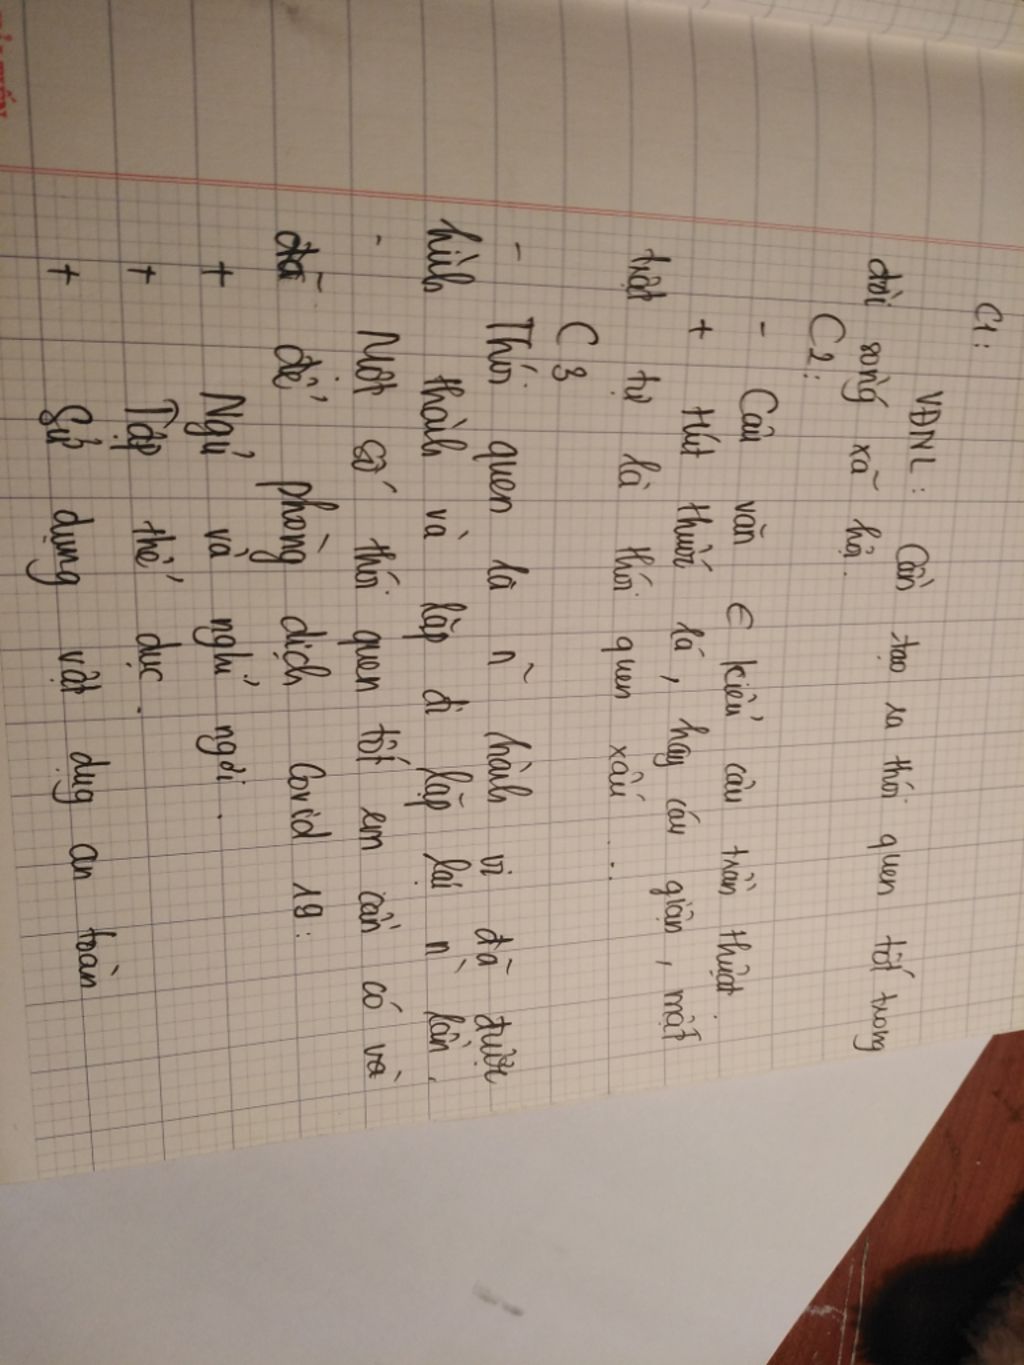 C1:
VĐNL: Cần tạo ra thói quen tốt trong
đời sống xã hội.
C2:
- Câu văn ∈ kiểu câu trần thuật.
+ Hút thuốc lá, hay cáu giận, mất
trật tự là thói quen xấu...
C3
- Thói quen là n~ hành vi đã được
hình thành và lặp đi lặp lại n` lần.
- Một số thói quen tốt em cần có và
đã để phòng dịch Covid 19:
+ Ngủ và nghỉ ngơi.
+ Tập thể dục.
+ Sử dụng vật dụg an toàn